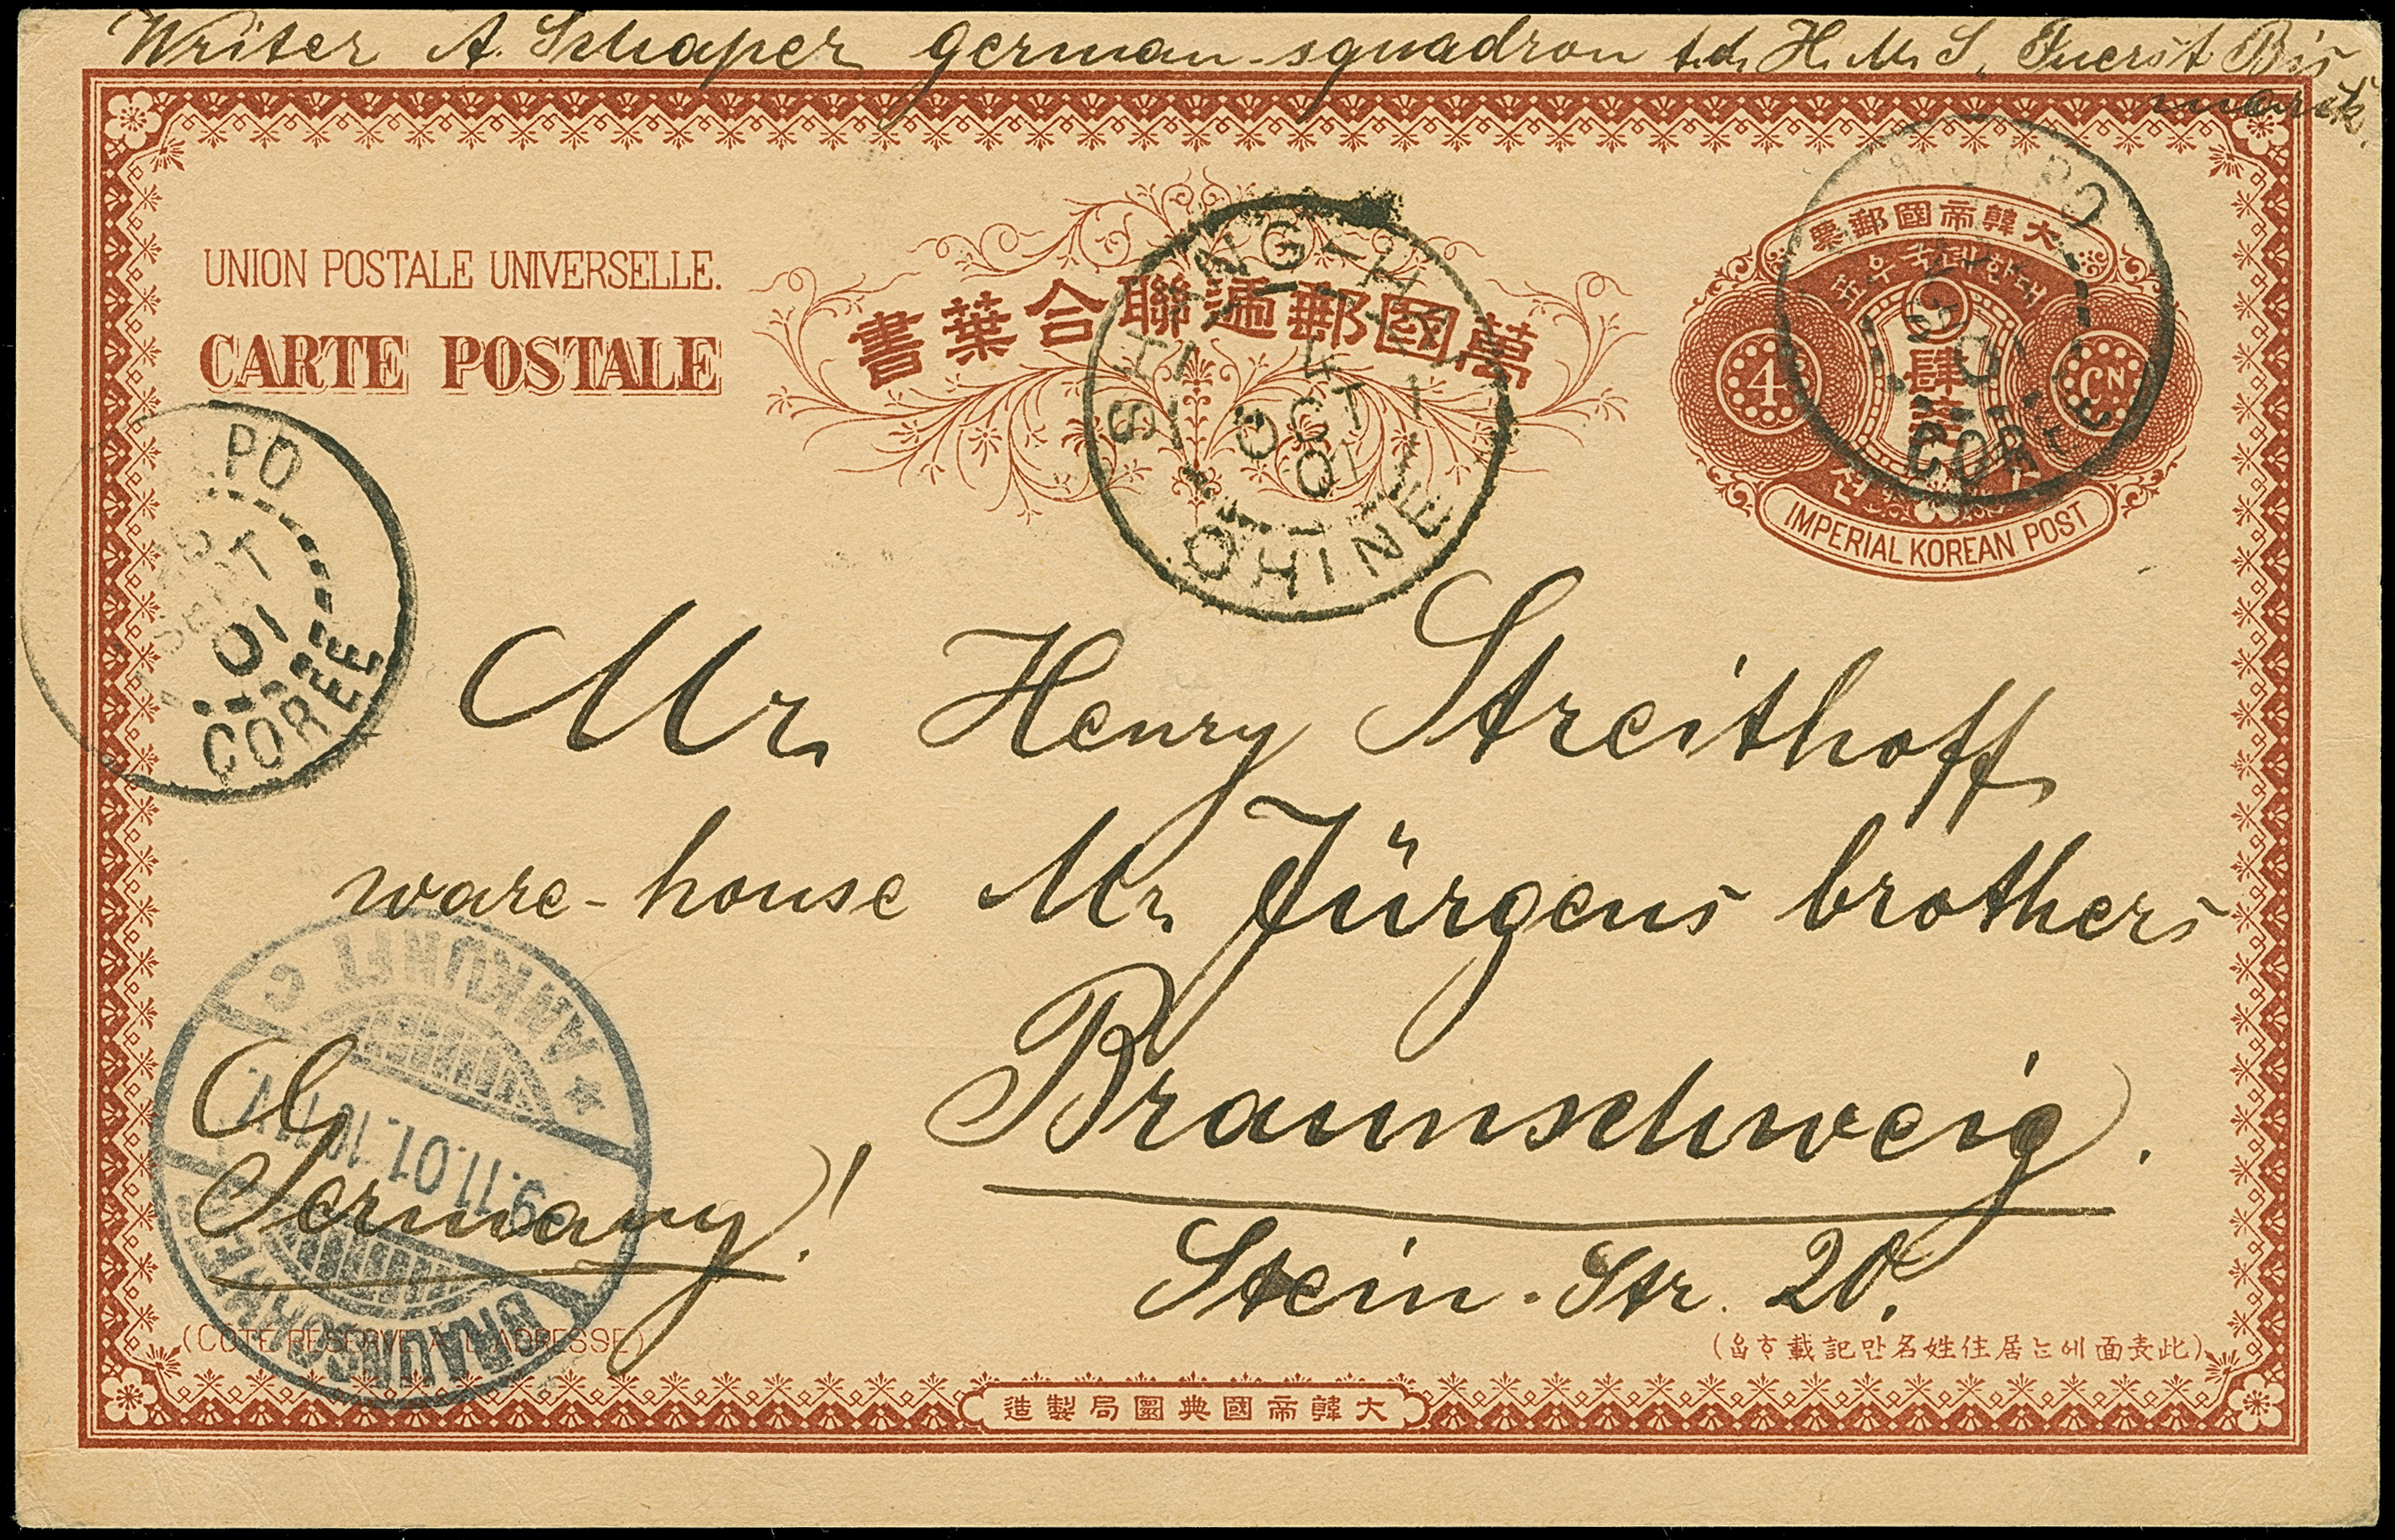 Writer A. Schaper german-squadron t.d. H. M. S. Fuerst Bis
marck.
UNION POSTALE UNIVERSELLE.
CARTE POSTALE
書葉合聯遞郵國萬
票郵國帝韓大
표우국대한대
4
肆錢
CN
IMPERIAL KOREAN POST
COREE
SHANG-HAI
4
OCT
01
CHINE
PO
SEPT
01
COREE
Mr. Henry Streithoff
ware-house Mr. Jürgens brothers
Braunschweig.
Stein-Str. 20.
Germany!
ANKUNFT C
9.11.01. 10-11V.
BRAUNSCHWEIG
(COTÉ RÉSERVÉ A L'ADRESSE)
(홈ᄒᆞ載記만名姓住居는에面表此)
造製局圜典國帝韓大